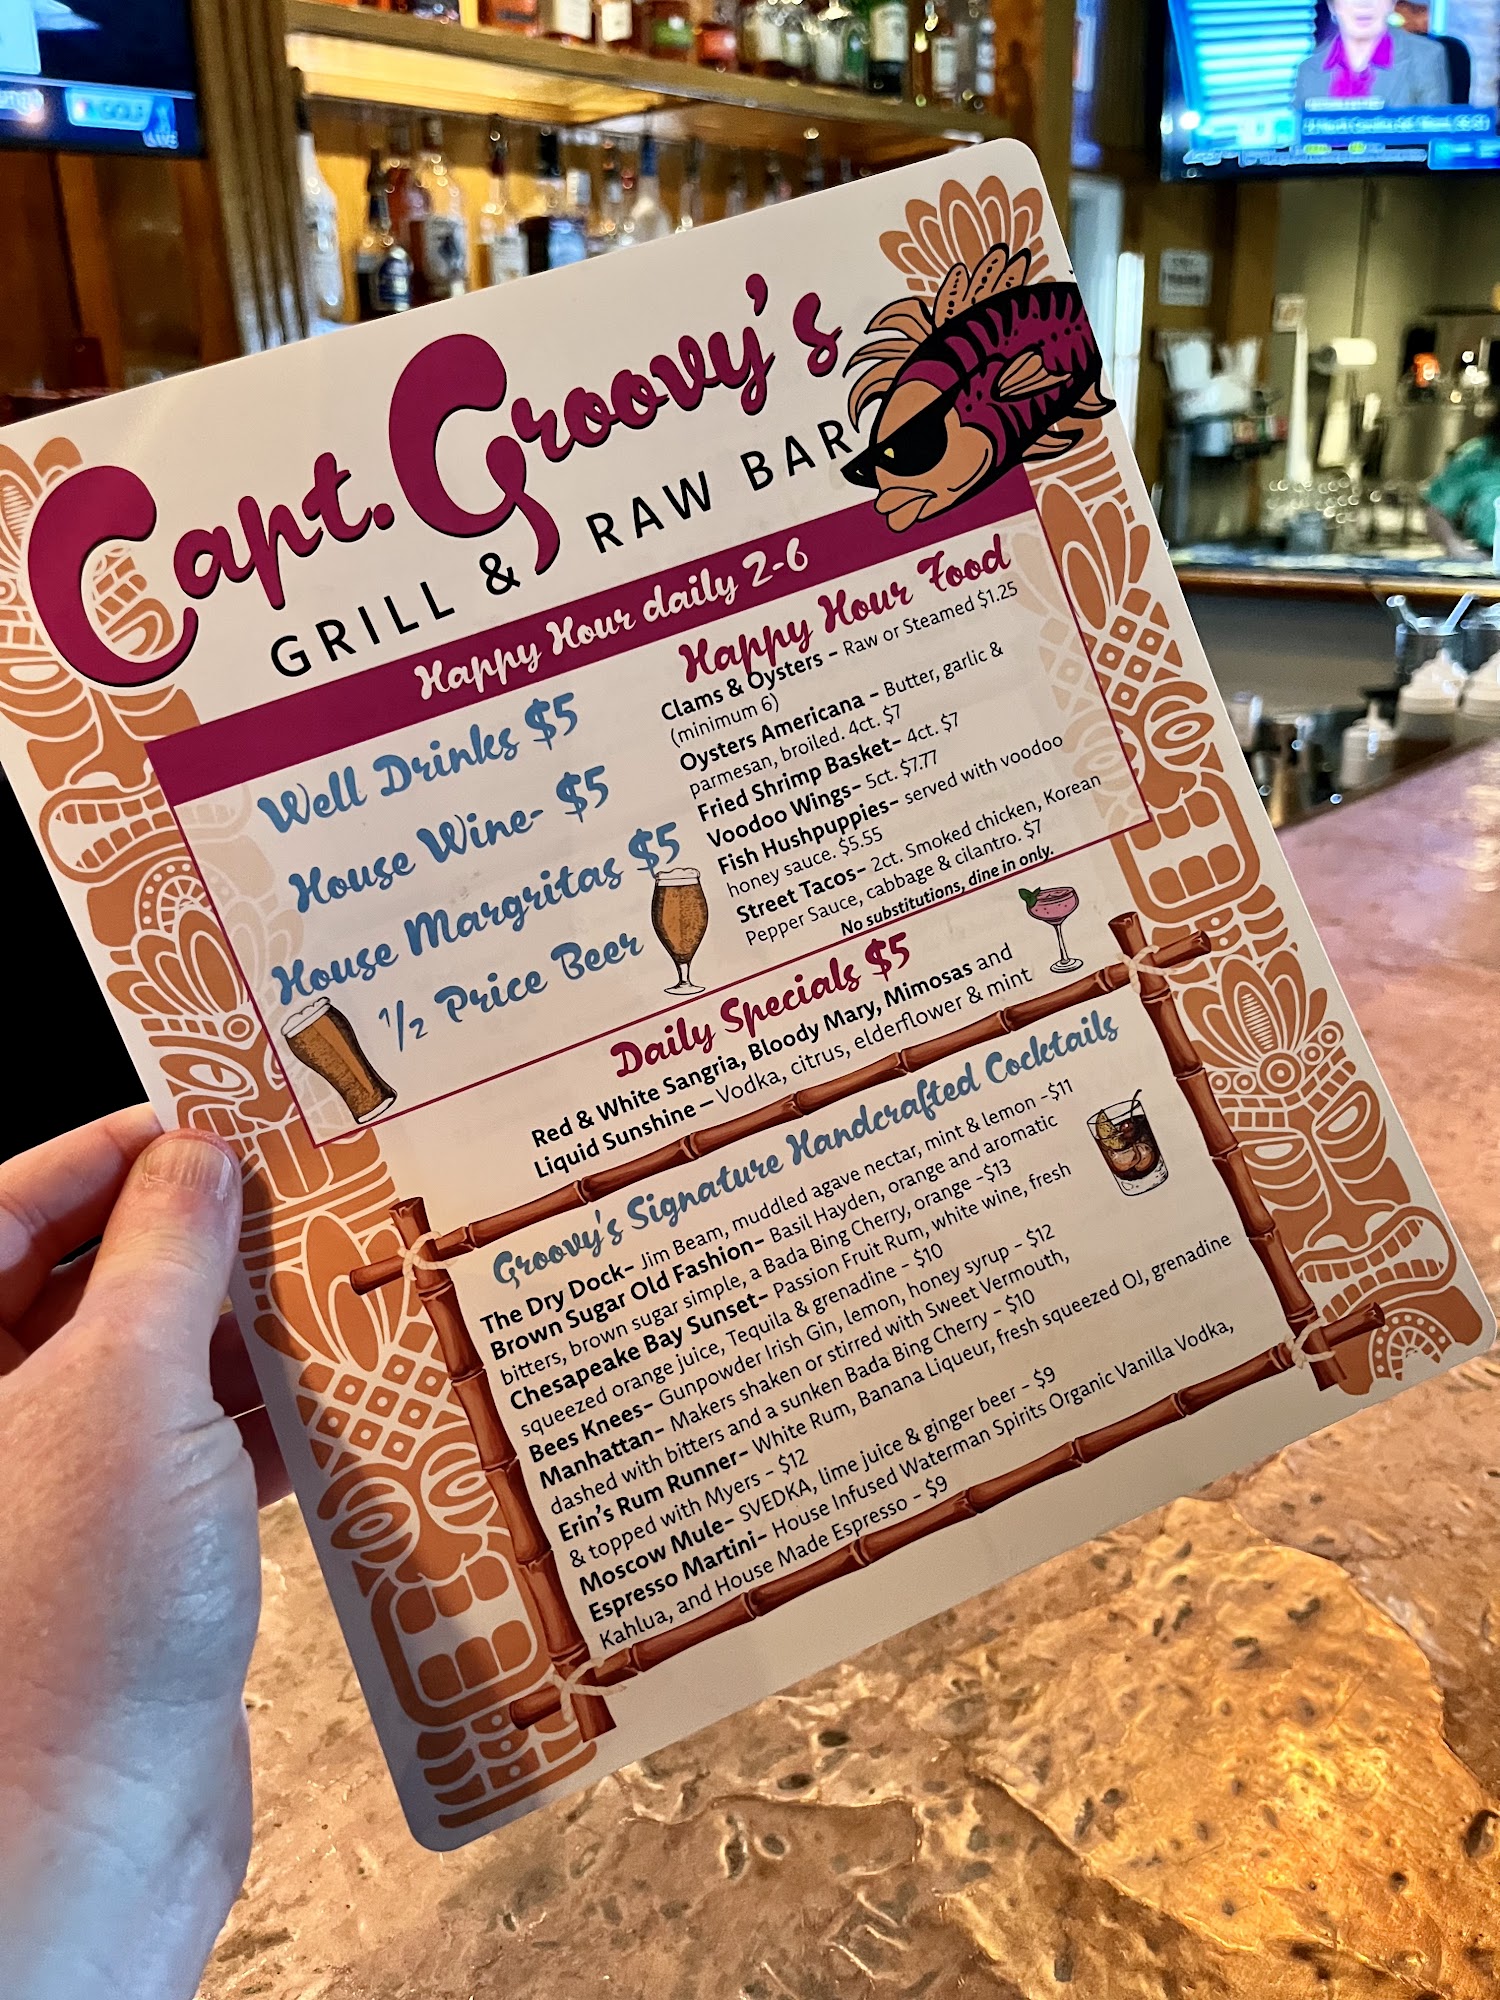 Capt. Groovy's
GRILL & RAW BAR
Happy Hour daily 2-6
Well Drinks $5
House Wine- $5
House Margritas $5
1/2 Price Beer
Happy Hour Food
Clams & Oysters – Raw or Steamed $1.25
(minimum 6)
Oysters Americana – Butter, garlic &
parmesan, broiled. 4ct. $7
Fried Shrimp Basket– 4ct. $7
Voodoo Wings– 5ct. $7.77
Fish Hushpuppies– served with voodoo
honey sauce. $5.55
Street Tacos– 2ct. Smoked chicken, Korean
Pepper Sauce, cabbage & cilantro. $7
No substitutions, dine in only.
Daily Specials $5
Red & White Sangria, Bloody Mary, Mimosas and
Liquid Sunshine – Vodka, citrus, elderflower & mint
Groovy's Signature Handcrafted Cocktails
The Dry Dock– Jim Beam, muddled agave nectar, mint & lemon -$11
Brown Sugar Old Fashion– Basil Hayden, orange and aromatic
bitters, brown sugar simple, a Bada Bing Cherry, orange -$13
Chesapeake Bay Sunset– Passion Fruit Rum, white wine, fresh
squeezed orange juice, Tequila & grenadine - $10
Bees Knees– Gunpowder Irish Gin, lemon, honey syrup - $12
Manhattan– Makers shaken or stirred with Sweet Vermouth,
dashed with bitters and a sunken Bada Bing Cherry – $10
Erin's Rum Runner– White Rum, Banana Liqueur, fresh squeezed OJ, grenadine
& topped with Myers - $12
Moscow Mule– SVEDKA, lime juice & ginger beer - $9
Espresso Martini– House Infused Waterman Spirits Organic Vanilla Vodka,
Kahlua, and House Made Espresso - $9
GOLF